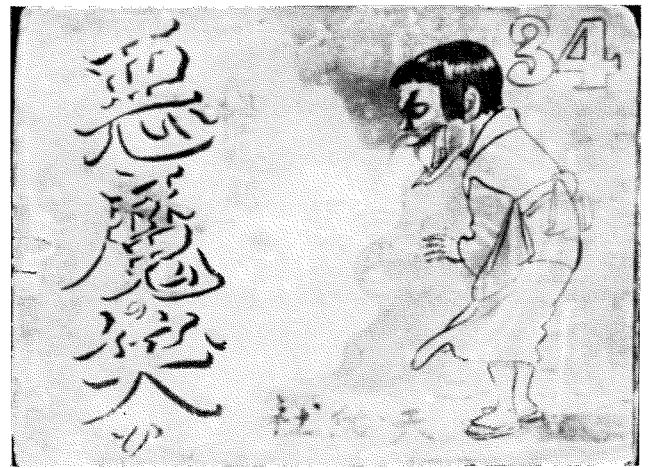 34
悪魔の笑ひ